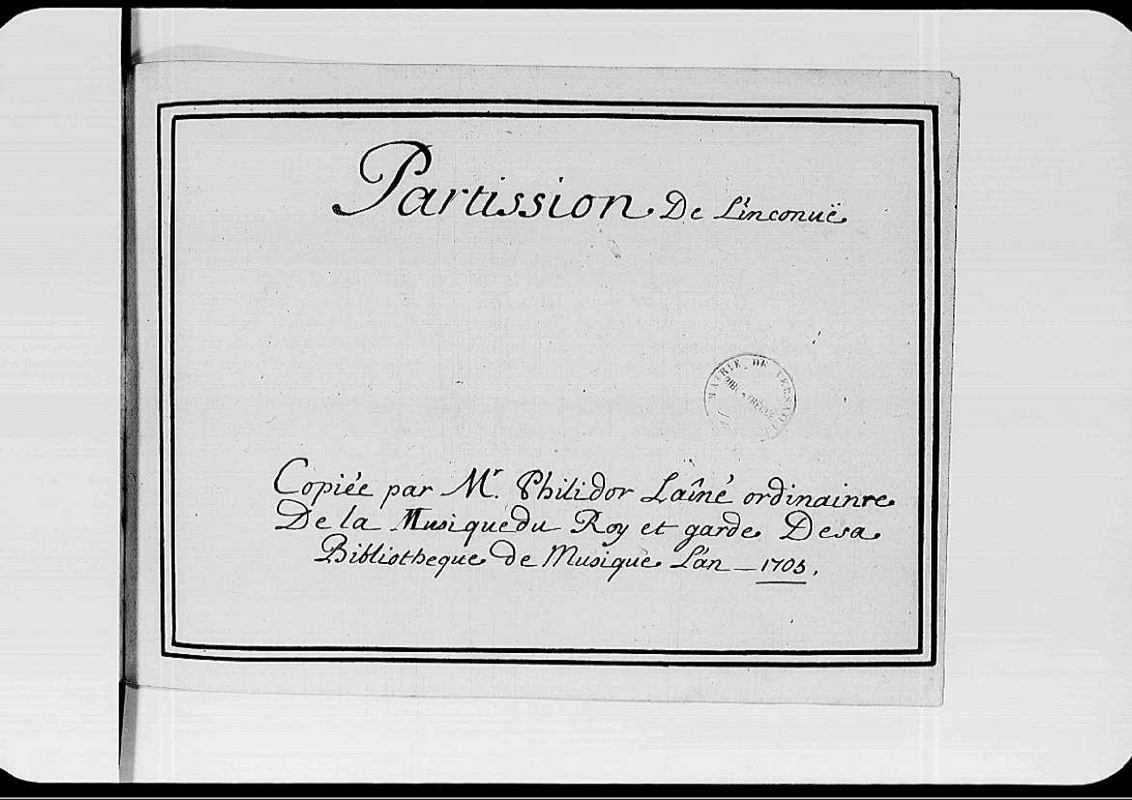 Partission De L'inconuë
MAIRIE DE VERSAILLES
Copiée par Mr. Philidor Laîné ordinainre
De la Musique du Roy et garde De sa
Bibliotheque de Musique L'an — 1703.